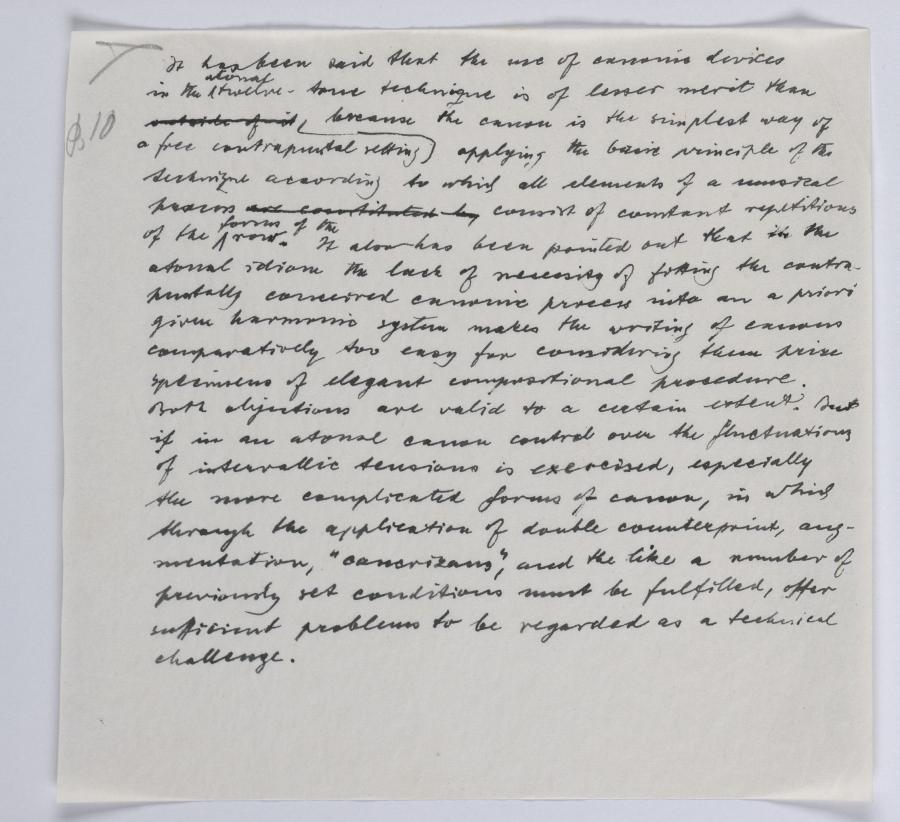 It has been said that the use of canonic devices
in the atonal twelve-tone technique is of lesser merit than
outside of it, because the canon is the simplest way of
a free contrapuntal setting) applying the basic principle of the
technique according to which all elements of a musical
process are constituted by consist of constant repetitions
of the forms of the row. It also has been pointed out that in the
atonal idiom the lack of necessity of fitting the contra-
puntally conceived canonic process into an a priori
given harmonic system makes the writing of canons
comparatively too easy for considering them prize
specimens of elegant compositional procedure.
Both objections are valid to a certain extent. But
if in an atonal canon control over the fluctuations
of intervallic tensions is exercised, especially
the more complicated forms of canon, in which
through the application of double counterpoint, aug-
mentation, "cancrizans", and the like a number of
previously set conditions must be fulfilled, offer
sufficient problems to be regarded as a technical
challenge.